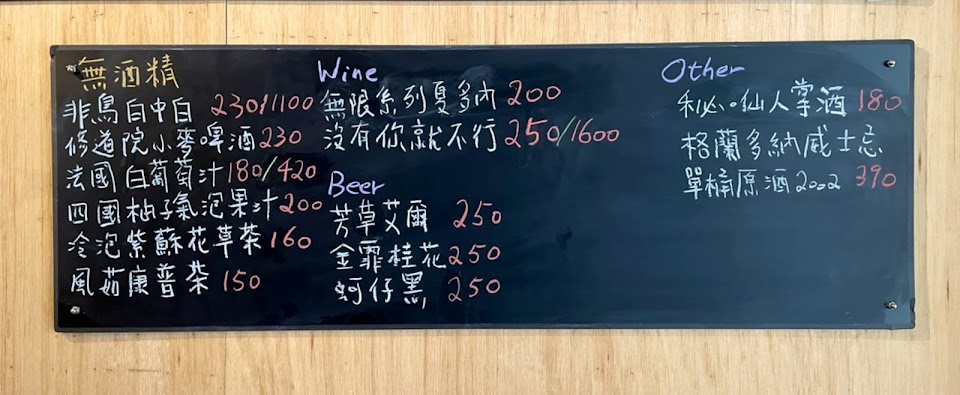 無酒精
非鳥白中白 230/1100
修道院小麥啤酒 230
法國白葡萄汁 180/420
四國柚子氣泡果汁 200
冷泡紫蘇花草茶 160
風茹康普茶 150
Wine
無限系列夏多內 200
沒有你就不行 250/1600
Beer
芳草艾爾 250
金霏桂花 250
蚵仔黑 250
Other
秘心仙人掌酒 180
格蘭多納威士忌
單桶原酒2002 390